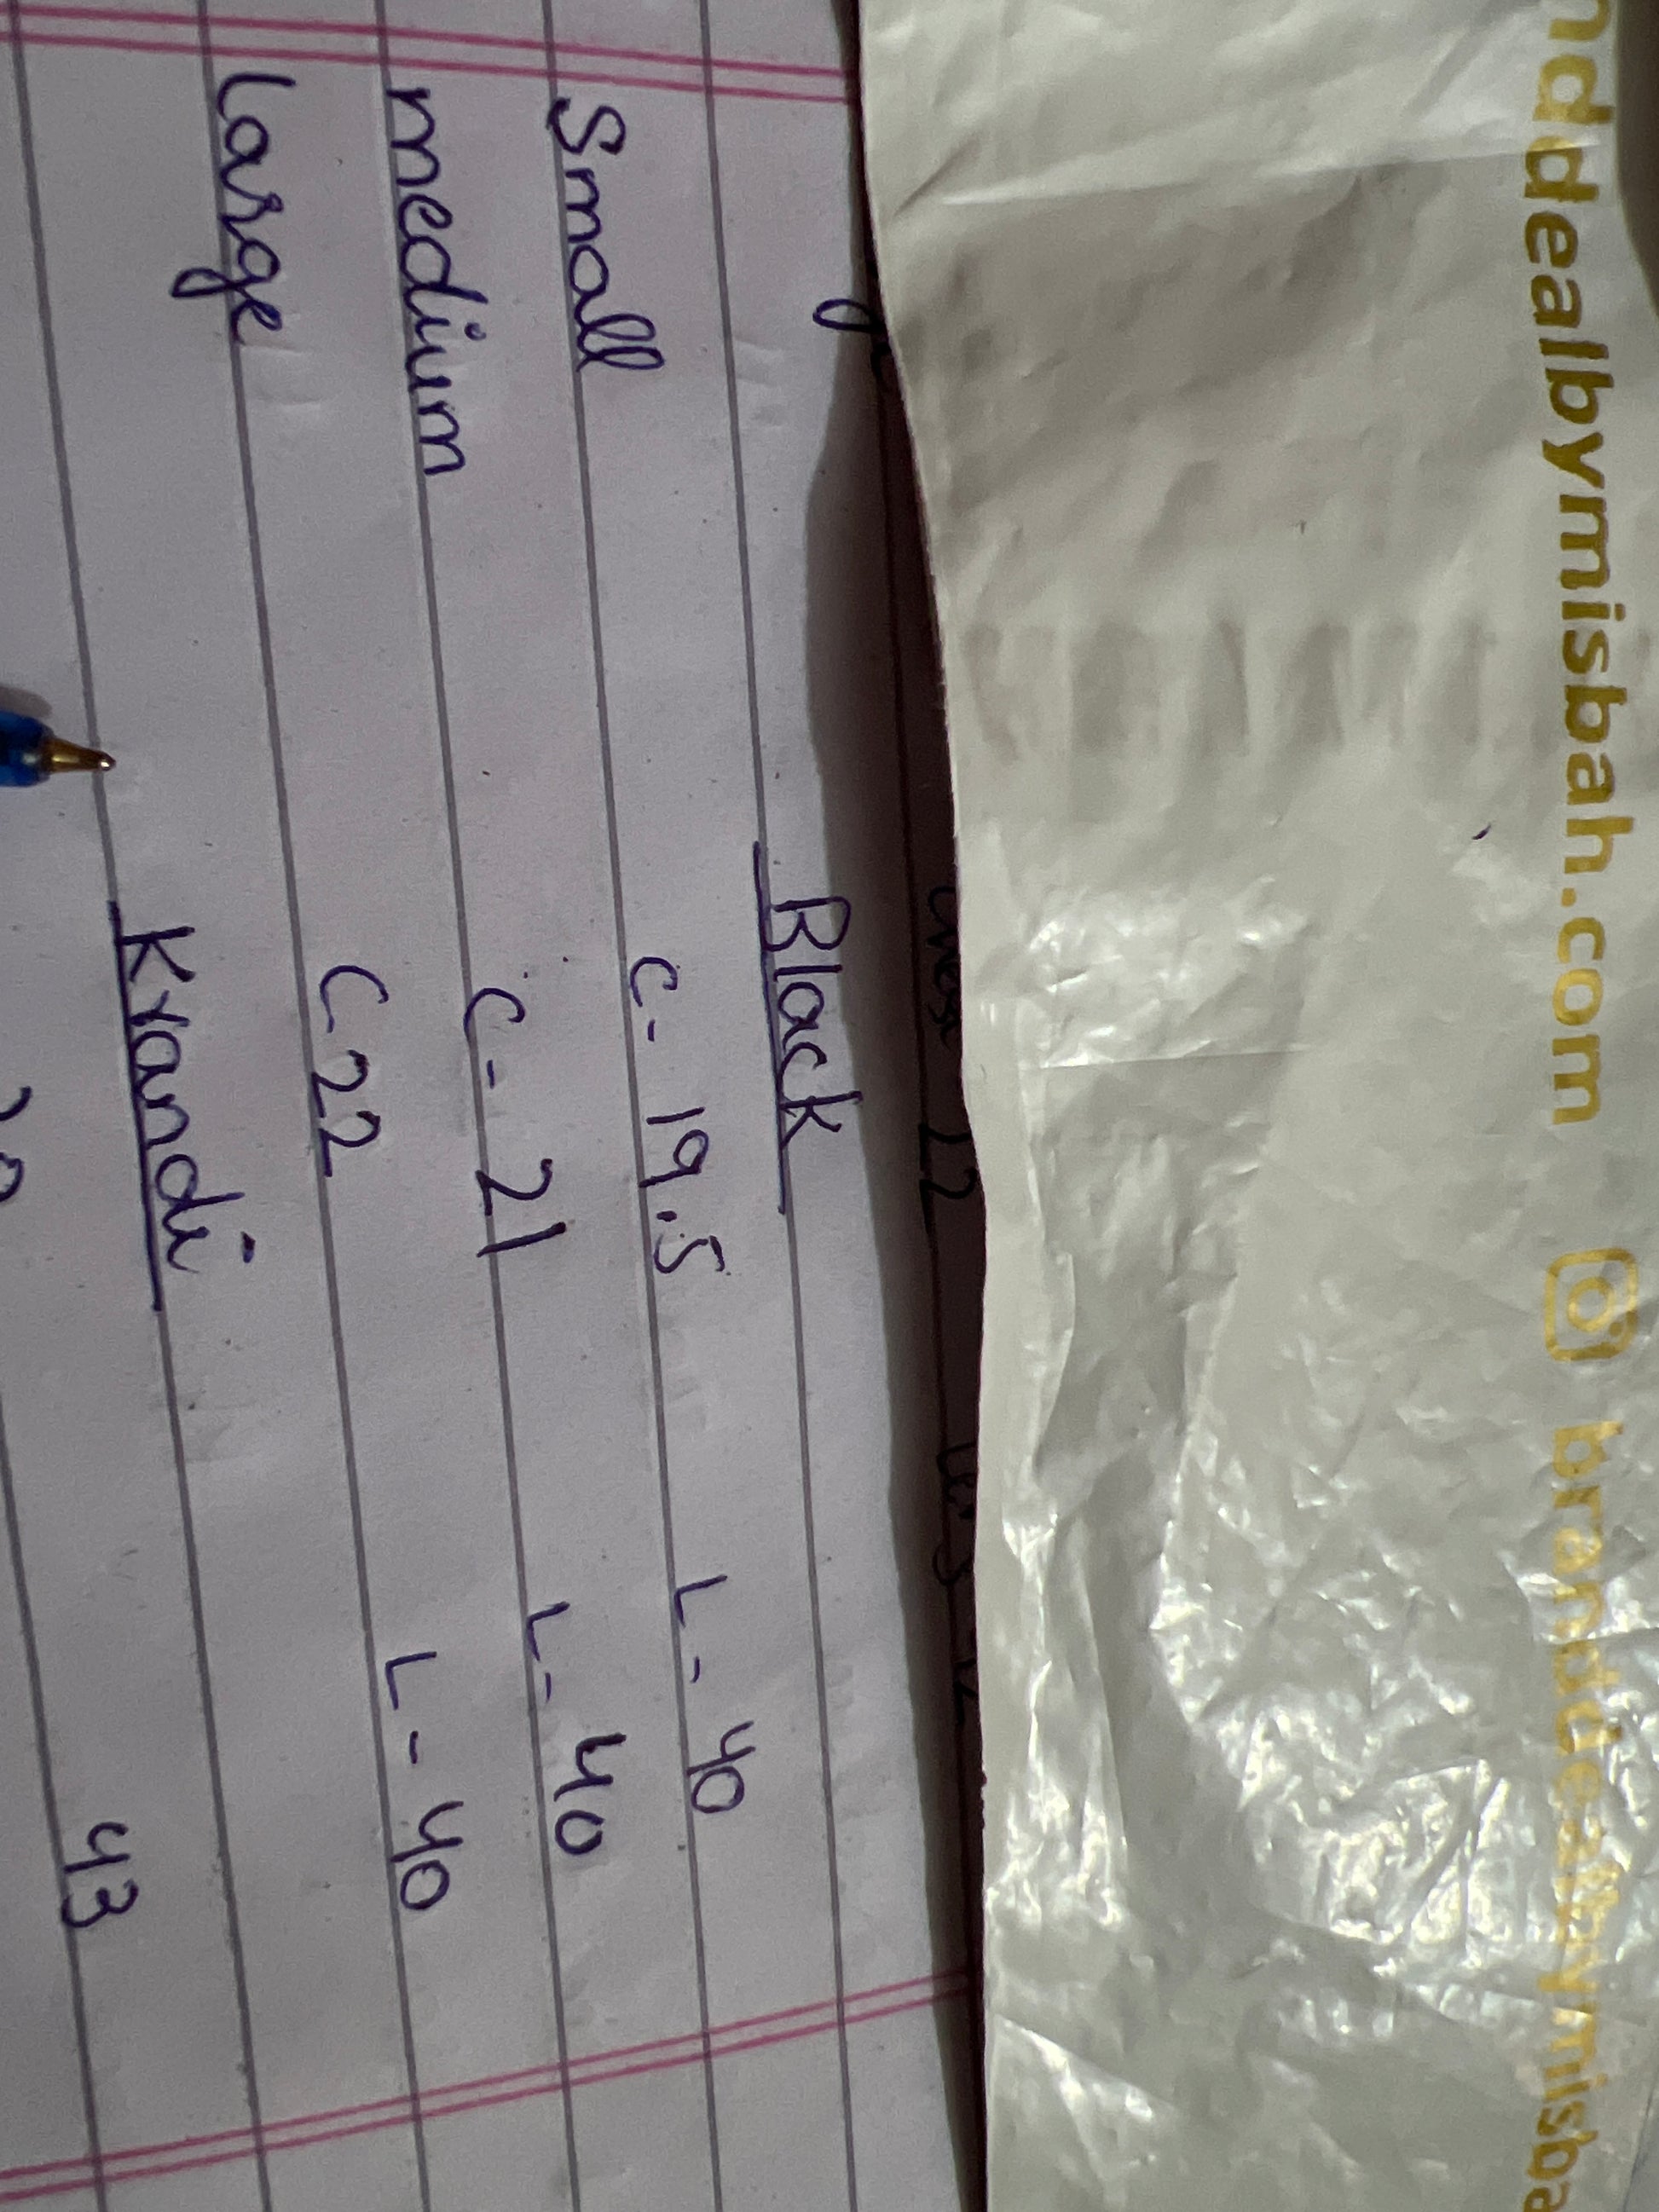 nddealbymisbah.com branddealbymisba
22
Black
Small C- 19.5 L - 40
medium C - 21 L - 40
Large C 22 L - 40
Krandi
43